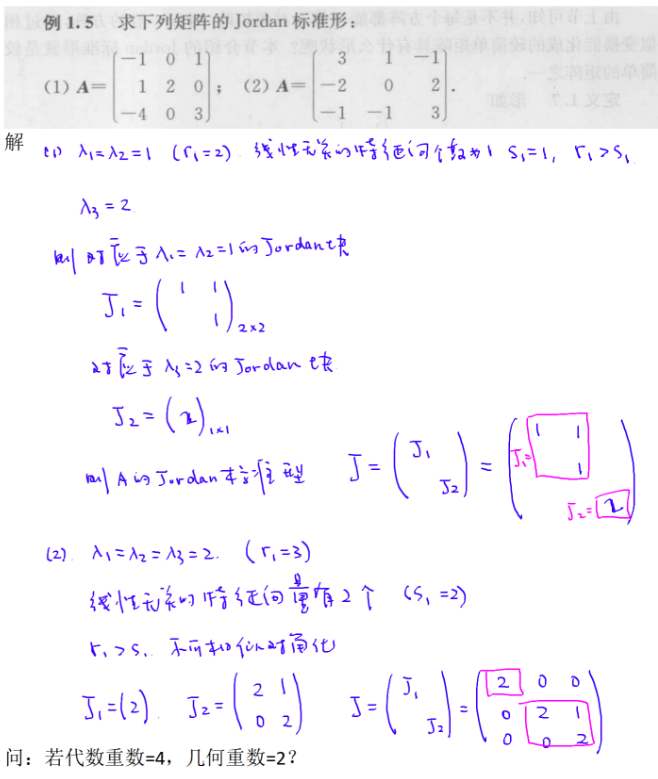 例 1.5 求下列矩阵的 Jordan 标准形:
(1) A= ( -1 0 1
1 2 0
-4 0 3 ) ; (2) A= ( 3 1 -1
-2 0 2
-1 -1 3 ) .
解 (1) λ₁=λ₂=1 (r₁=2) 线性无关的特征向个数为1 S₁=1, r₁>S₁
λ₃=2
则 对应于 λ₁=λ₂=1的Jordan块
J₁= ( 1 1
1 )₂ₓ₂
对应于 λ₃=2的Jordan块
J₂= (2)₁ₓ₁
则 A的Jordan标准型 J= ( J₁
J₂ ) = ( J₁= 1 1
1
J₂= 2 )
(2). λ₁=λ₂=λ₃=2. (r₁=3)
线性无关的特征向量有2个 (S₁=2)
r₁>S₁. 不可相似对角化
J₁=(2) J₂= ( 2 1
0 2 ) J= ( J₁
J₂ ) = ( 2 0 0
0 2 1
0 0 2 )
问：若代数重数=4，几何重数=2？